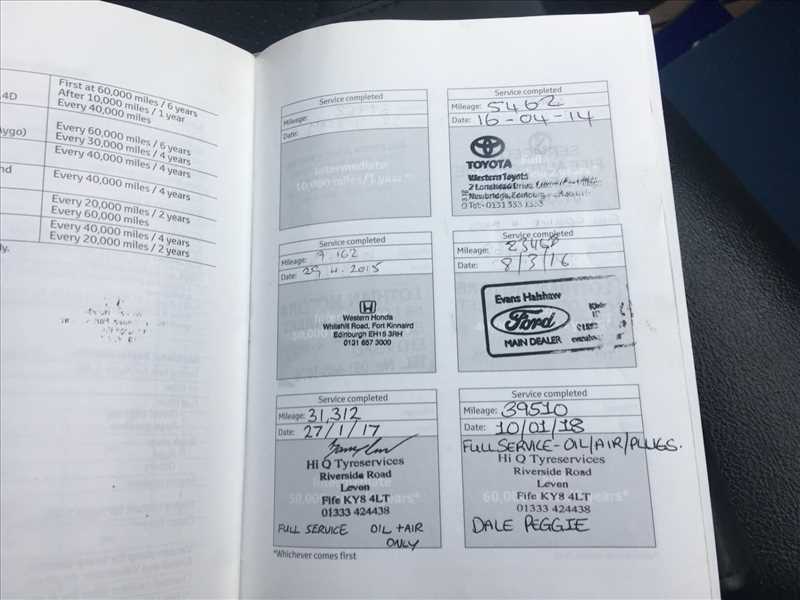 First at 60,000 miles / 6 years
4D
After 10,000 miles / 1 year
Every 40,000 miles
Aygo)
Every 60,000 miles / 6 years
Every 30,000 miles / 4 years
Every 40,000 miles / 4 years
nd
Every 40,000 miles / 4 years
Every 20,000 miles / 2 years
Every 60,000 miles
Every 40,000 miles / 4 years
Every 20,000 miles / 2 years
ly.
Service completed
Mileage:
Date:
Intermediate
10,000 miles/1 year*
Service completed
Mileage: 5462
Date: 16-04-14
Full
TOYOTA
Western Toyota
2 Lonehead Drive
Newbridge, Edinburgh
Tel: 0131 333
Service completed
Mileage: 9 162
Date: 29.4.2015
Western Honda
Whitehill Road, Fort Kinnaird
Edinburgh EH15 3RH
0131 657 3000
Service completed
Mileage:
Date: 8/3/16
Evans Halshaw
Ford
MAIN DEALER
Service completed
Mileage: 31,312
Date: 27/1/17
Hi Q Tyreservices
Riverside Road
Leven
Fife KY8 4LT
01333 424438
FULL SERVICE OIL + AIR
ONLY
Service completed
Mileage: 39510
Date: 10/01/18
FULL SERVICE - OIL/AIR/PLUGS.
Hi Q Tyreservices
Riverside Road
Leven
Fife KY8 4LT
01333 424438
DALE PEGGIE
*Whichever comes first